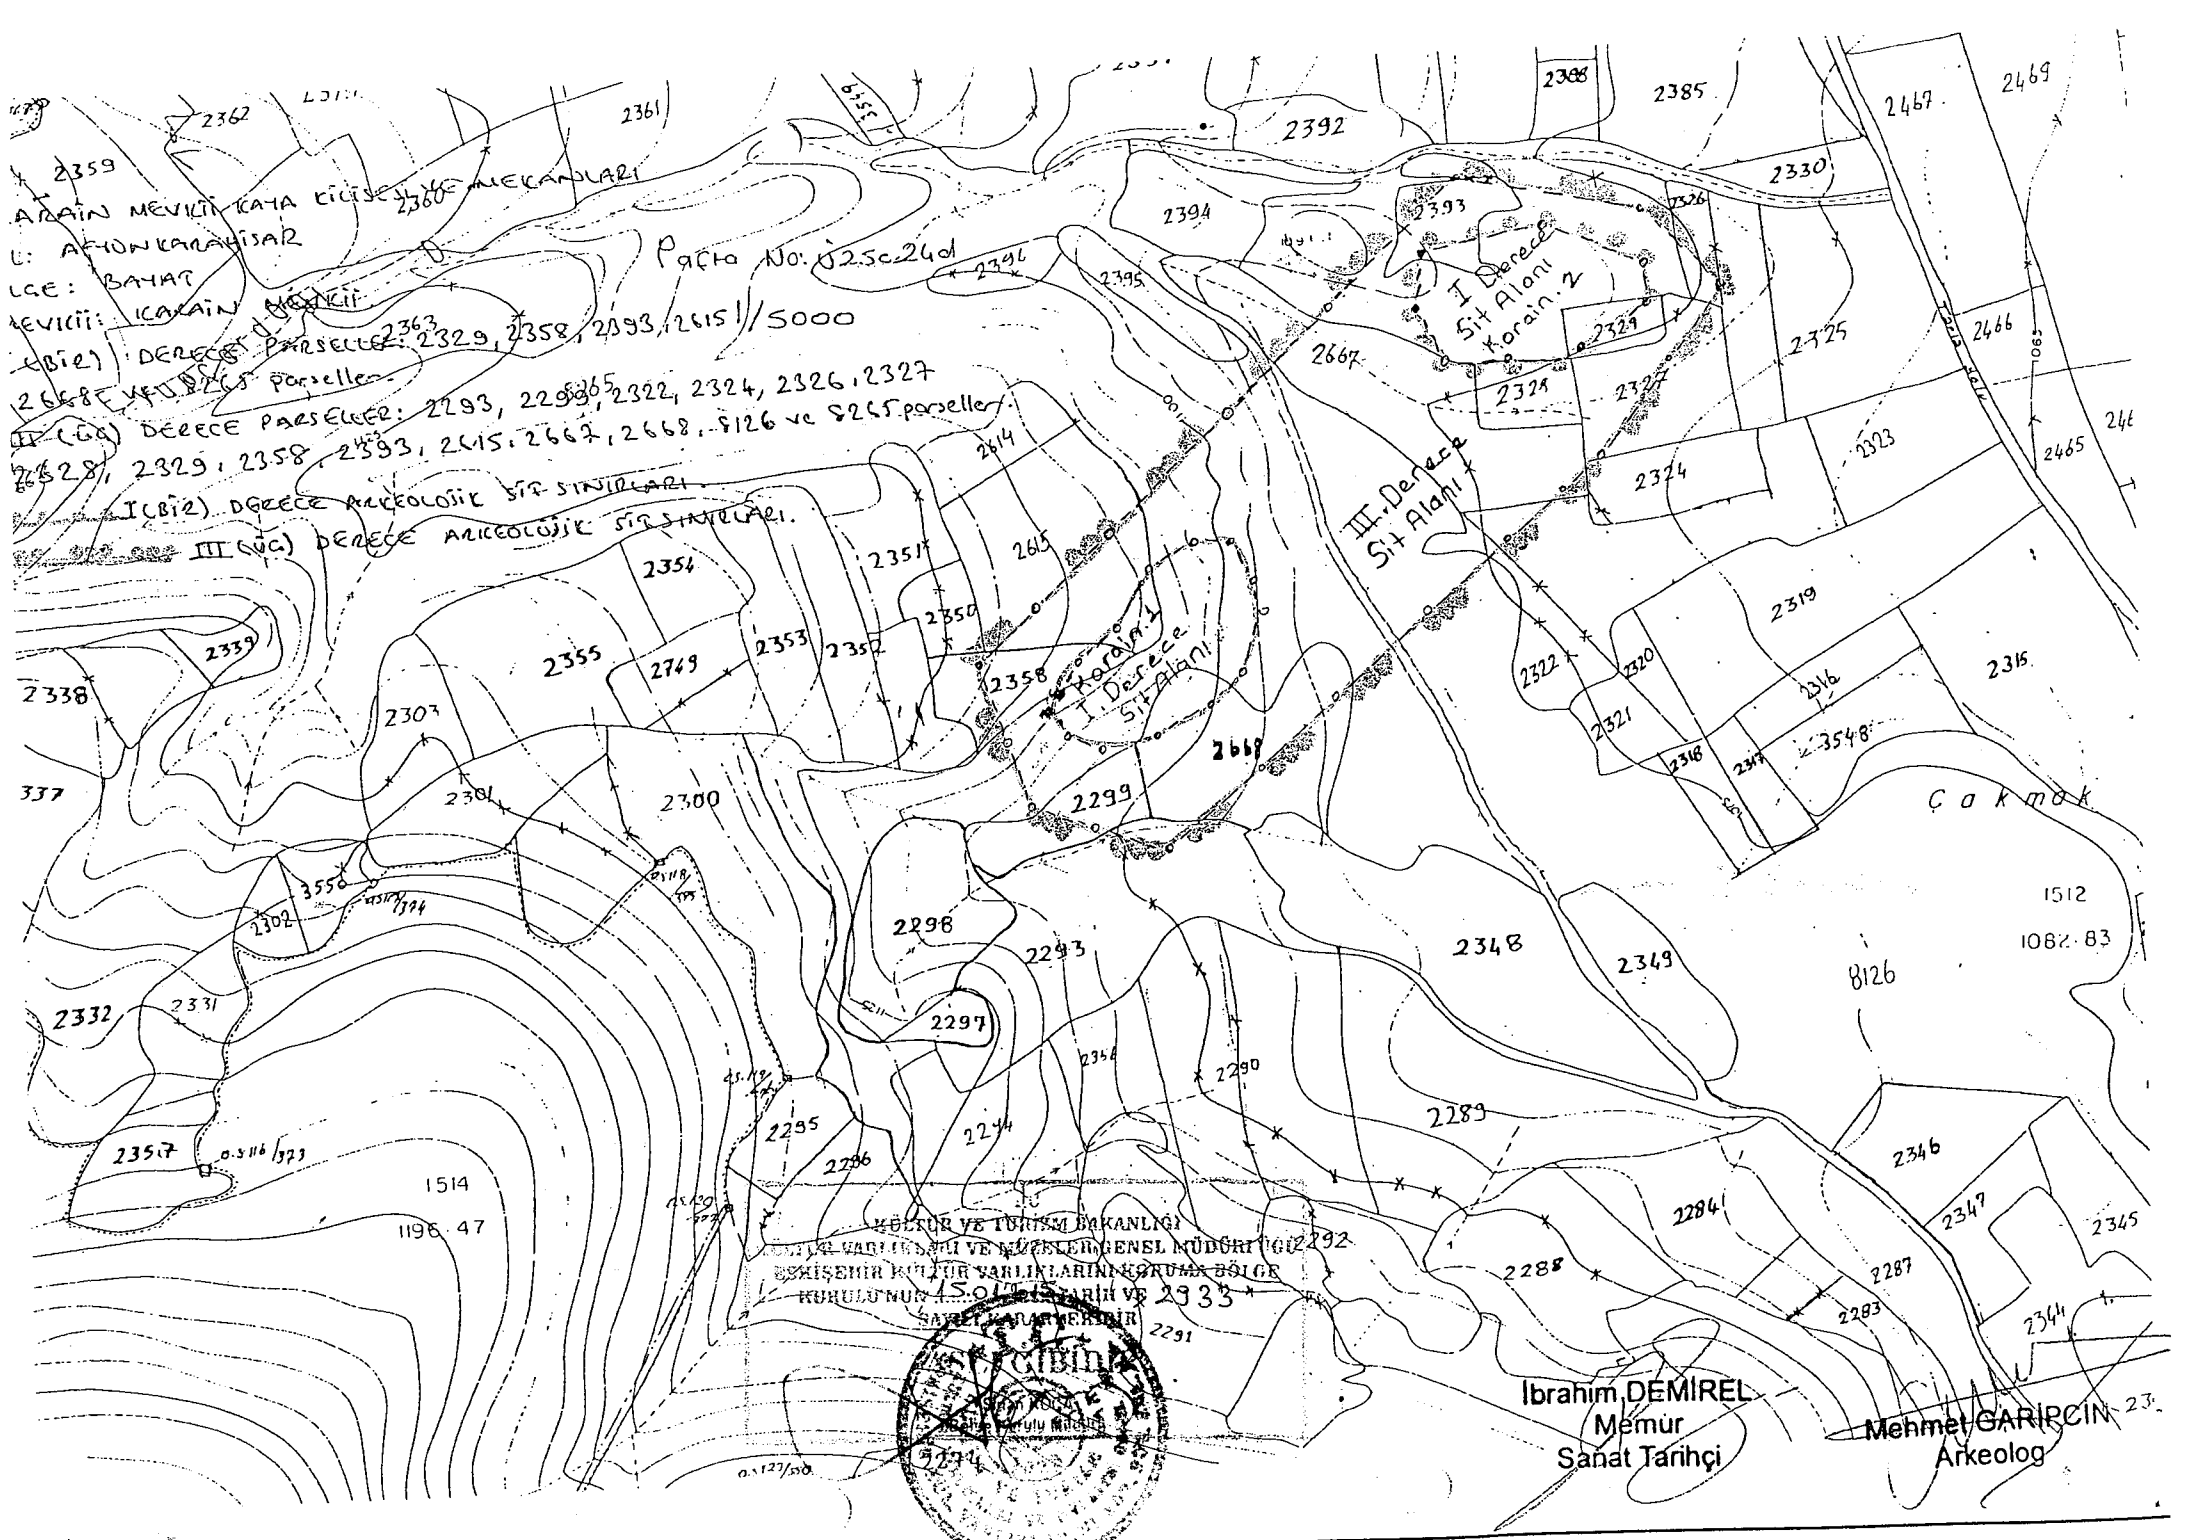 2362
2361
3549
2392
2388
2385
2467
2469
2359
2360
2330
ARAİN MEVKİİ KAYA KİLİSESİ VE MEKANLARI
L: AFYONKARAHİSAR
LGE: BAYAT
EVKİİ: KARAİN MEVKİİ
Pafta No: J25c24d
1/5000
(BİR) DERECE PARSELLER: 2329, 2358, 2393, 2615
2668 VE 8265 parseller.
III (ÜÇ) DERECE PARSELLER: 2293, 2299, 2322, 2324, 2326, 2327
2328, 2329, 2358, 2393, 2615, 2667, 2668, 8126 ve 8265 parseller.
I (BİR) DERECE ARKEOLOJİK SİT SINIRLARI.
III (ÜÇ) DERECE ARKEOLOJİK SİT SINIRLARI.
2363
2394
2393
2326
2395
I Derece
Sit Alanı
Karain.2
2329
2667
2328
2327
2325
2466
2465
2323
2324
III. Derece
Sit Alanı
2614
2615
2354
2351
2350
2339
2338
2355
2749
2353
2352
2358
Karain.1
I. Derece
Sit Alanı
2319
2322
2320
2316
2315
2321
2318
2317
3548
2303
337
2301
2300
2299
2668
Çakmak
3550
2302
2298
2293
2348
2349
1512
1082.83
8126
2332
2331
2297
2290
2289
2357
0.5116/373
2295
2296
2294
2346
2347
2345
1514
1196.47
2284
2292
2288
2287
2283
2344
2291
KÜLTÜR VE TURİZM BAKANLIĞI
KÜLTÜR VARLIKLARI VE MÜZELER GENEL MÜDÜRLÜĞÜ
ESKİŞEHİR KÜLTÜR VARLIKLARINI KORUMA BÖLGE
KURULU'NUN TARİH VE 2933
SAYILI KARAR EKİDİR
ASLI GİBİDİR
2274
İbrahim DEMİREL
Memur
Sanat Tarihçi
Mehmet GARİPCİN
Arkeolog